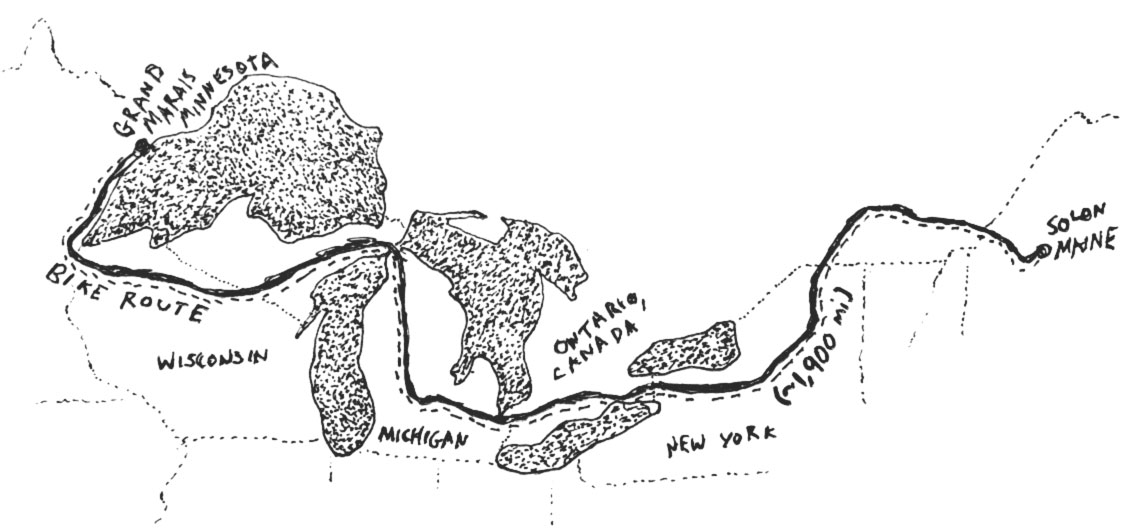 GRAND
MARAIS
MINNESOTA
BIKE ROUTE
WISCONSIN
MICHIGAN
ONTARIO,
CANADA
NEW YORK
(~1,900 mi)
SOLON
MAINE